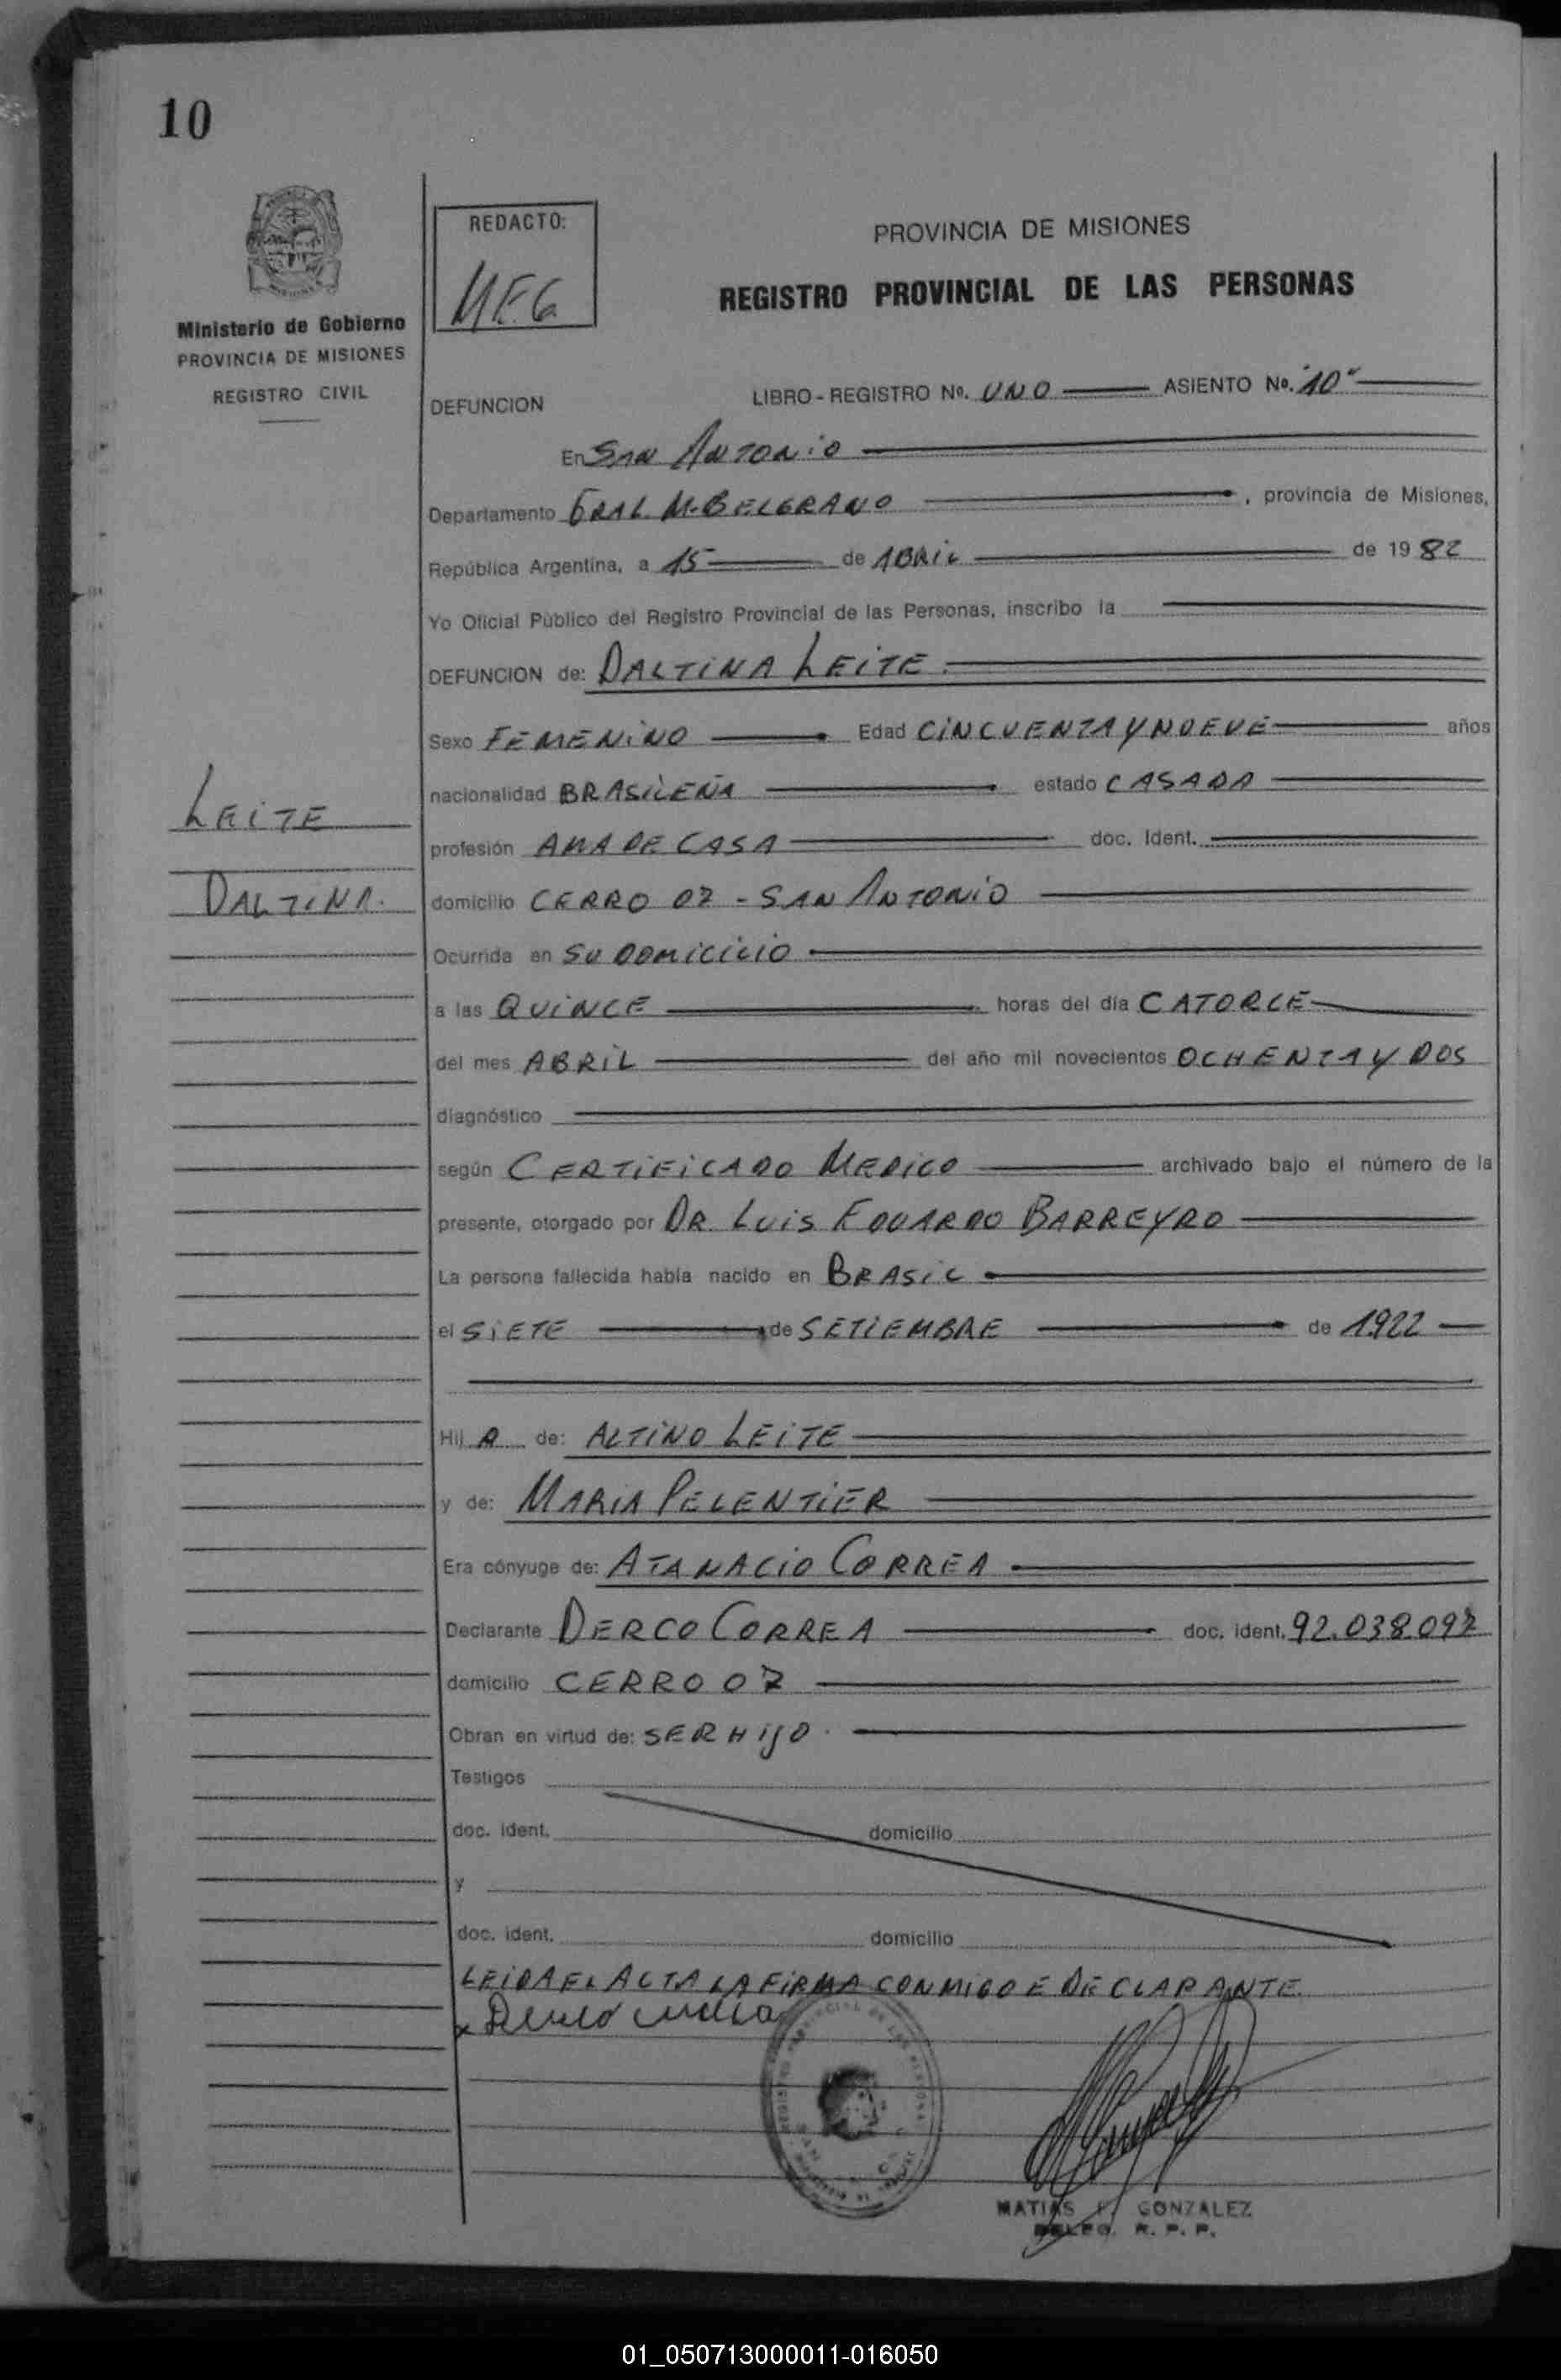 10
Ministerio de Gobierno
PROVINCIA DE MISIONES
REGISTRO CIVIL
REDACTO:
MFG
PROVINCIA DE MISIONES
REGISTRO PROVINCIAL DE LAS PERSONAS
DEFUNCION
LIBRO - REGISTRO No. UNO ASIENTO No. "10"
En SAN ANTONIO
Departamento GRAL M. BELGRANO , provincia de Misiones,
República Argentina, a 15 de ABRIL de 1982
Yo Oficial Público del Registro Provincial de las Personas, inscribo la
DEFUNCION de: DALTINA LEITE
Sexo FEMENINO Edad CINCUENTA Y NUEVE años
nacionalidad BRASILEÑA estado CASADA
LEITE
profesión AMA DE CASA doc. Ident.
DALTINA.
domicilio CERRO 07 - SAN ANTONIO
Ocurrida en SU DOMICILIO
a las QUINCE horas del día CATORCE
del mes ABRIL del año mil novecientos OCHENTA Y DOS
diagnóstico
según CERTIFICADO MEDICO archivado bajo el número de la
presente, otorgado por DR. LUIS EDUARDO BARREYRO
La persona fallecida había nacido en BRASIL
el SIETE de SETIEMBRE de 1922
Hij A de: ALTINO LEITE
y de: MARIA PELENTIER
Era cónyuge de: ATANACIO CORREA
Declarante DERCO CORREA doc. ident. 92.038.092
domicilio CERRO 07
Obran en virtud de: SER HIJO.
Testigos
doc. ident. domicilio
y
doc. ident. domicilio
LEIDA EL ACTA LA FIRMA CONMIGO E DECLARANTE.
MATIAS F. GONZALEZ
DELEG. R. P. P.
01_050713000011-016050